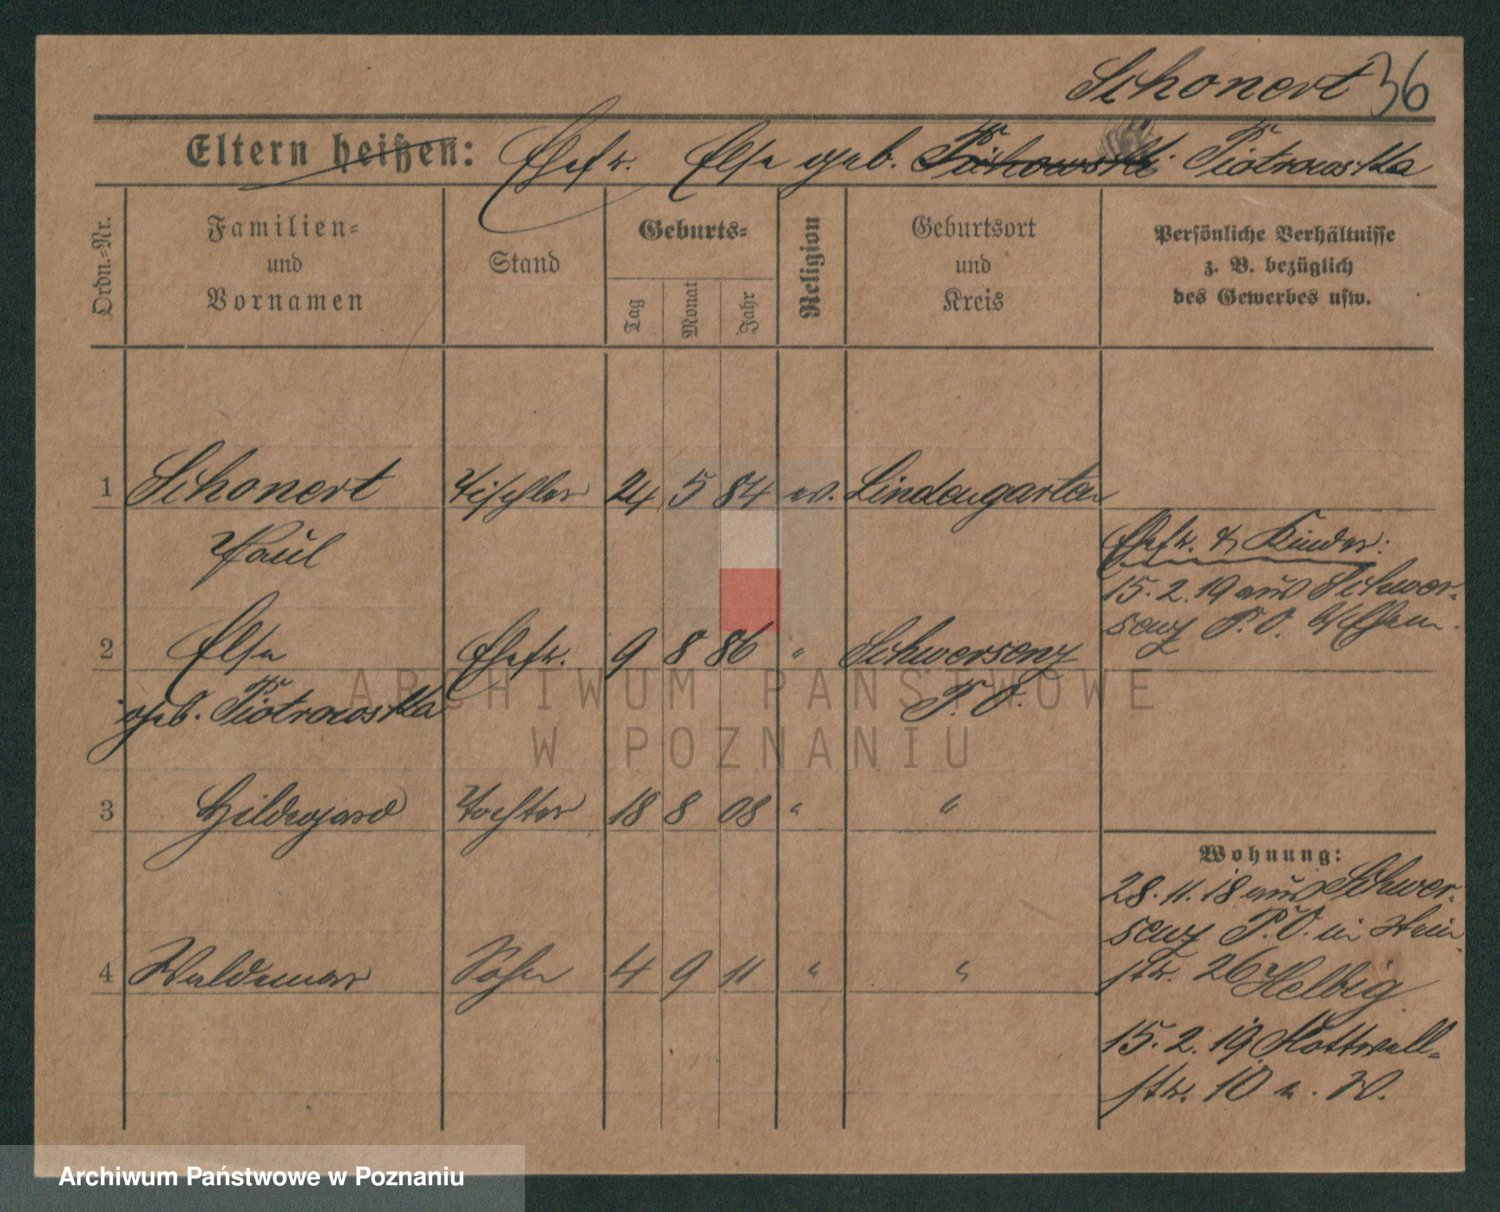 Schonert 36
Eltern heißen: Ehefr. Else geb. Piotrowska
Ordn.-Nr.
Familien-
und
Vornamen
Stand
Geburts-
Tag
Monat
Jahr
Religion
Geburtsort
und
Kreis
Persönliche Verhältnisse
z. B. bezüglich
des Gewerbes usw.
1 Schonert Tischler 24 5 84 ev. Lindengarten
Paul
Ehefr. & Kinder:
15. 2. 19 aus Schwer-
senz P. O.
2 Else Ehefr. 9 8 86 " Schwersenz
geb. Piotrowska P. O.
3 Hildegard Tochter 18 8 08 " "
4 Waldemar Sohn 4 9 11 " "
Wohnung:
28. 11. 18 aus Schwer-
senz P. O. in
str. 26 Helbig
15. 2. 19. Kottwell-
str. 10 b. W.
ARCHIWUM PAŃSTWOWE
W POZNANIU
Archiwum Państwowe w Poznaniu